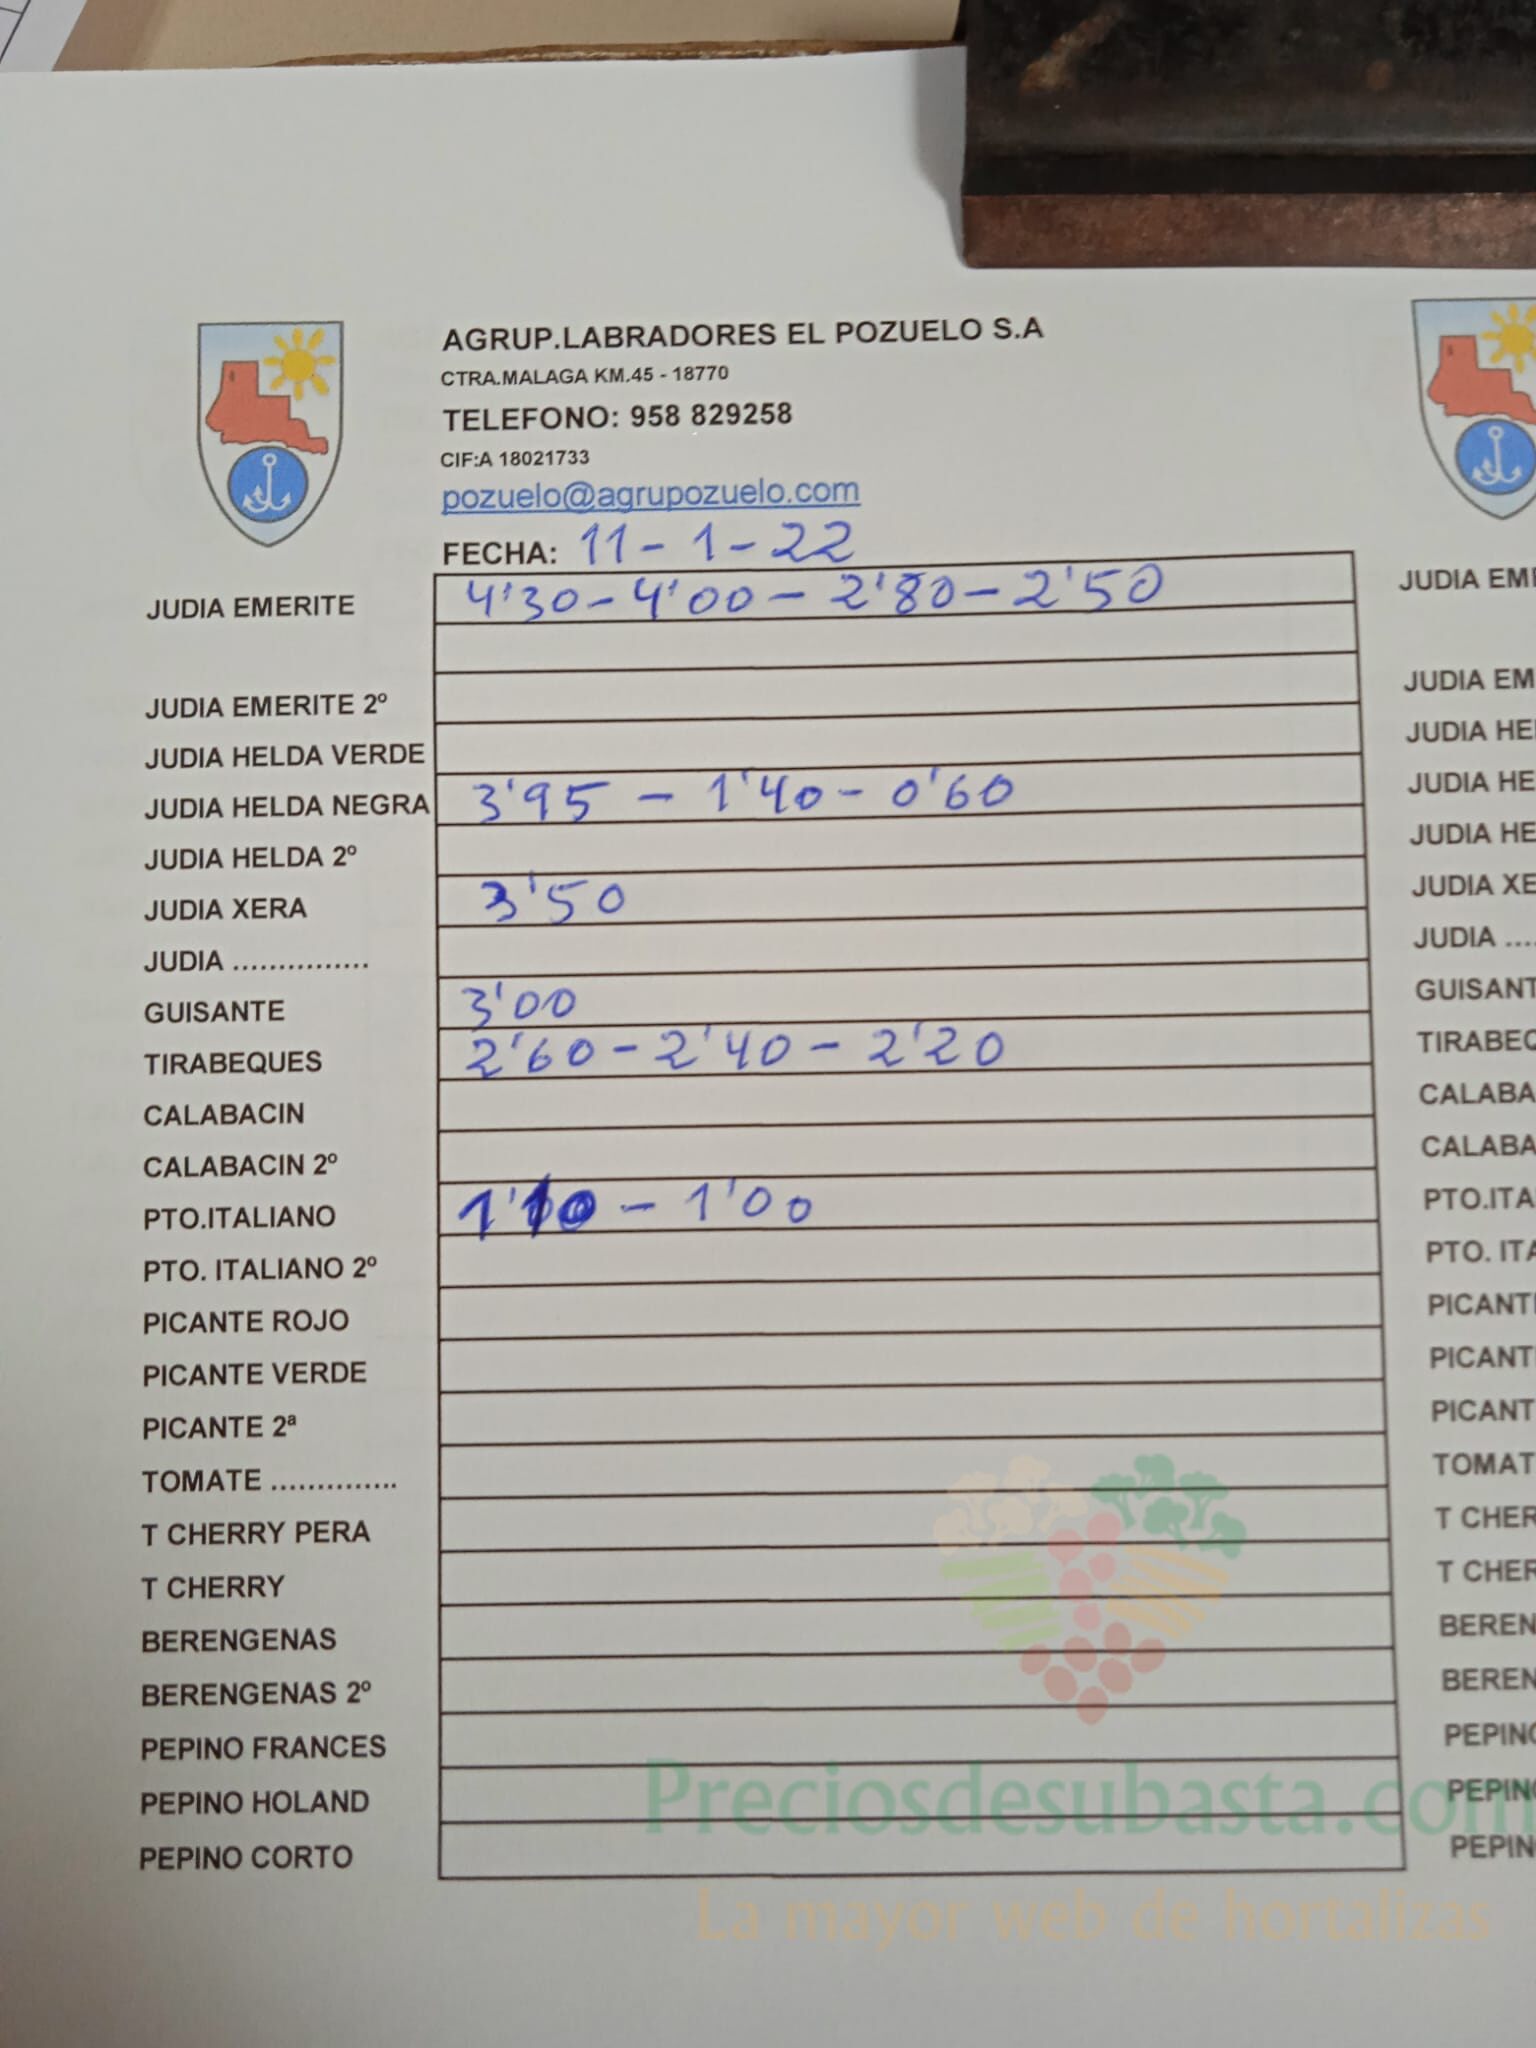 AGRUP.LABRADORES EL POZUELO S.A
CTRA.MALAGA KM.45 - 18770
TELEFONO: 958 829258
CIF:A 18021733
pozuelo@agrupozuelo.com
FECHA: 11-1-22
JUDIA EMERITE 4'30-4'00-2'80-2'50
JUDIA EMERITE 2º
JUDIA HELDA VERDE
JUDIA HELDA NEGRA 3'95-1'40-0'60
JUDIA HELDA 2º
JUDIA XERA 3'50
JUDIA ...............
GUISANTE 3'00
TIRABEQUES 2'60-2'40-2'20
CALABACIN
CALABACIN 2º
PTO.ITALIANO 1'10-1'00
PTO. ITALIANO 2º
PICANTE ROJO
PICANTE VERDE
PICANTE 2ª
TOMATE ..............
T CHERRY PERA
T CHERRY
BERENGENAS
BERENGENAS 2º
PEPINO FRANCES
PEPINO HOLAND
PEPINO CORTO
JUDIA EM
JUDIA EM
JUDIA HE
JUDIA HE
JUDIA HE
JUDIA XE
JUDIA ....
GUISANT
TIRABEQ
CALABA
CALABA
PTO.ITA
PTO. ITA
PICANT
PICANT
PICANT
TOMAT
T CHER
T CHER
BEREN
BEREN
PEPINO
PEPINO
PEPIN
Preciosdesubasta.com
La mayor web de hortalizas